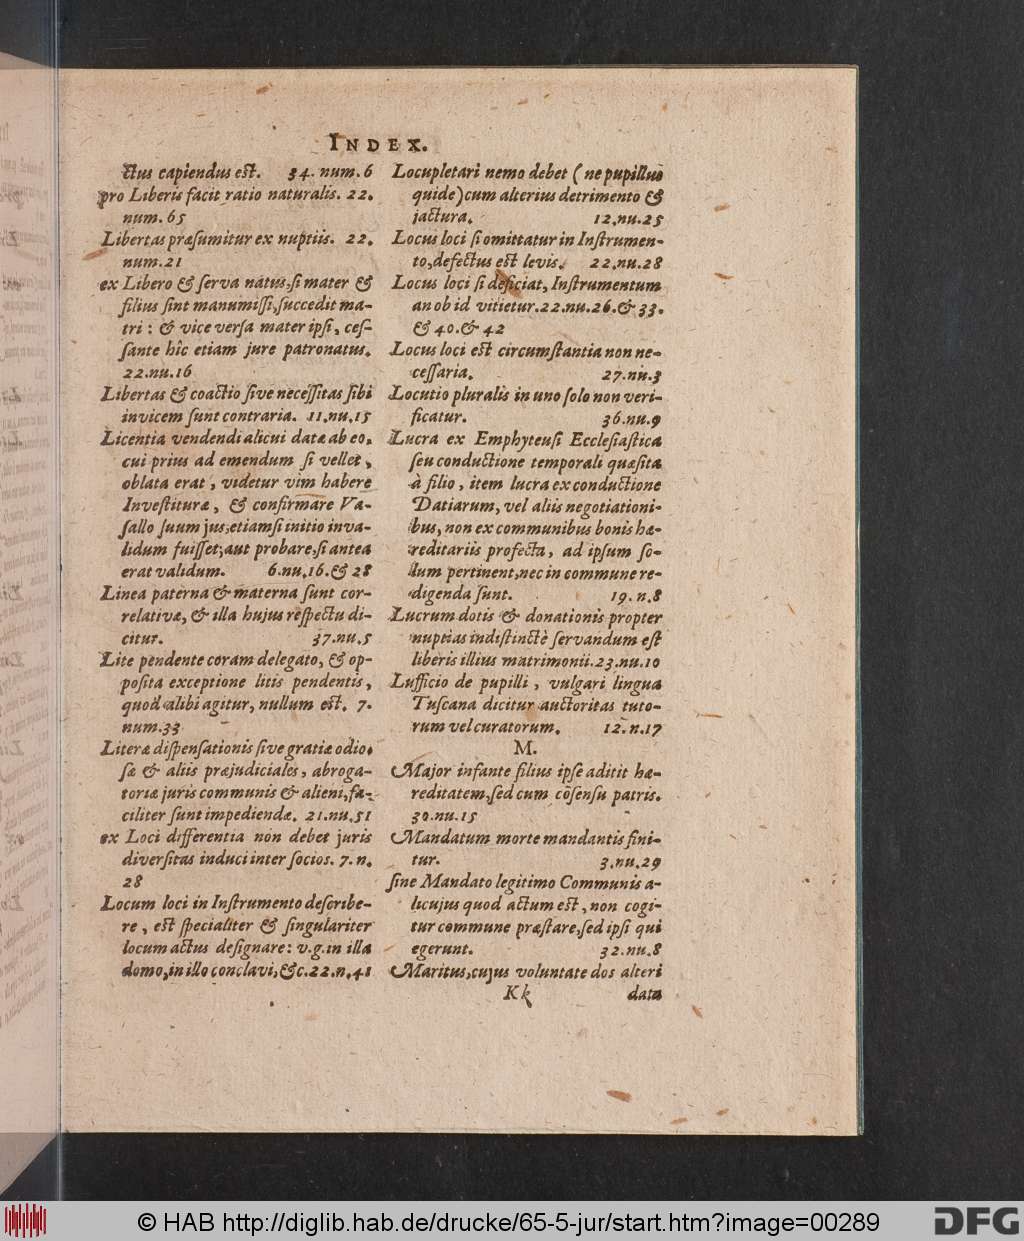 INDEX.
ctus capiendus est. 34. num. 6
pro Liberis facit ratio naturalis. 22.
num. 65
Libertas præsumitur ex nuptiis. 22.
num. 21
ex Libero & serva natus, si mater &
filius sint manumissi, succedit ma-
tri : & vice versa mater ipsi, ces-
sante hîc etiam jure patronatus.
22.nu.16
Libertas & coactio sive necessitas sibi
invicem sunt contraria. 11.nu.15
Licentia vendendi alicui data ab eo,
cui prius ad emendum si vellet,
oblata erat, videtur vim habere
Investituræ, & confirmare Va-
sallo suum jus, etiamsi initio inva-
lidum fuisset; aut probare, si antea
erat validum. 6.nu.16.& 28
Linea paterna & materna sunt cor-
relativæ, & illa hujus respectu di-
citur. 37.nu.5
Lite pendente coram delegato, & op-
posita exceptione litis pendentis,
quod alibi agitur, nullum est. 7.
num.33
Literæ dispensationis sive gratiæ odio-
sæ & aliis præjudiciales, abroga-
toriæ juris communis & alieni, fa-
ciliter sunt impediendæ. 21.nu.51
ex Loci differentia non debet juris
diversitas induci inter socios. 7. n.
28
Locum loci in Instrumento describe-
re, est specialiter & singulariter
locum actus designare: v.g. in illa
domo, in illo conclavi, &c. 22.n.41
Locupletari nemo debet (ne pupillus
quide) cum alterius detrimento &
jactura. 12.nu.25
Locus loci si omittatur in Instrumen-
to, defectus est levis. 22.nu.28
Locus loci si deficiat, Instrumentum
an ob id vitietur. 22.nu.26.& 33.
& 40.& 42
Locus loci est circumstantia non ne-
cessaria. 27.nu.3
Locutio pluralis in uno solo non veri-
ficatur. 36.nu.9
Lucra ex Emphyteusi Ecclesiastica
seu conductione temporali quæsita
à filio, item lucra ex conductione
Datiarum, vel aliis negotiationi-
bus, non ex communibus bonis hæ-
reditariis profecta, ad ipsum so-
lum pertinent, nec in commune re-
digenda sunt. 19. n.8
Lucrum dotis & donationis propter
nuptias indistinctè servandum est
liberis illius matrimonii. 23.nu.10
Lufficio de pupilli, vulgari lingua
Tuscana dicitur auctoritas tuto-
rum vel curatorum. 12.n.17
M.
Major infante filius ipse aditit hæ-
reditatem, sed cum cõsensu patris.
30.nu.15
Mandatum morte mandantis fini-
tur. 3.nu.29
sine Mandato legitimo Communis a-
licujus quod actum est, non cogi-
tur commune præstare, sed ipsi qui
egerunt. 32.nu.8
Maritus, cujus voluntate dos alteri
Kk data
© HAB http://diglib.hab.de/drucke/65-5-jur/start.htm?image=00289
DFG